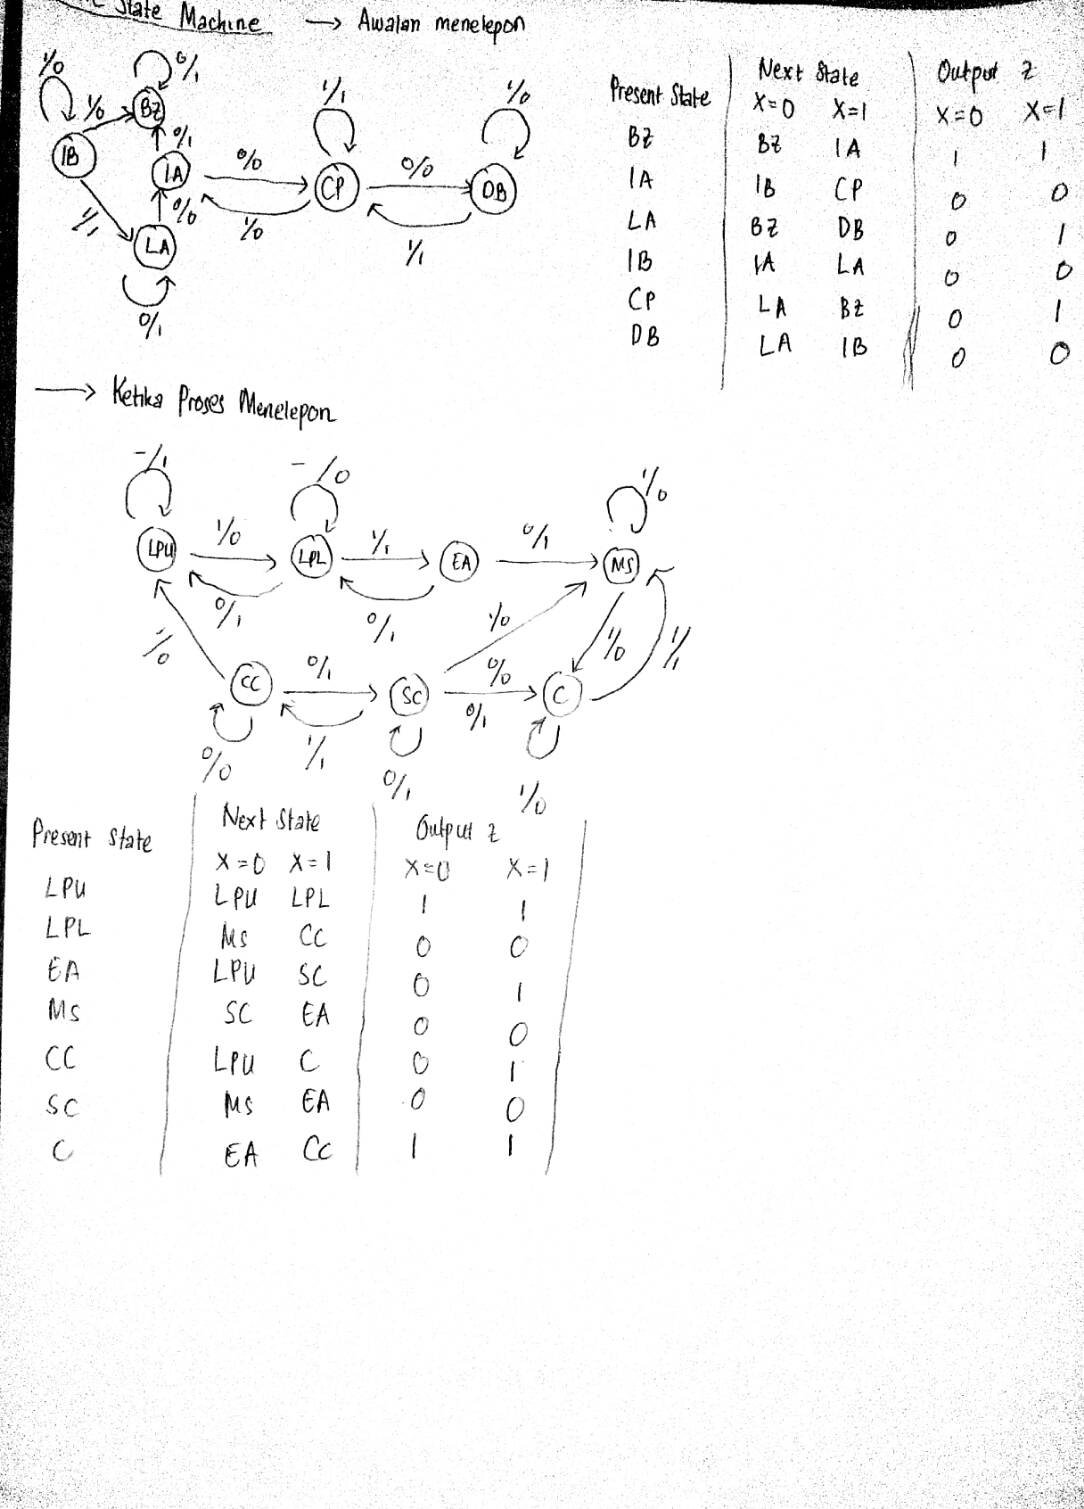 State Machine → Awalan menelepon
1/0 0/1
1/0 BZ 1/1 1/0
IB 0/1
IA 0/0 CP 0/0 DB
1/1 0/0 1/0 1/1
LA
0/1
Present State Next State Output z
X=0 X=1 X=0 X=1
BZ BZ IA 1 1
IA IB CP 0 0
LA BZ DB 0 1
IB IA LA 0 0
CP LA BZ 0 1
DB LA IB 0 0
→ Ketika Proses Menelepon
-/1 -/0 1/0
1/0 1/1 0/1
LPU LPL EA MS
0/1 0/1 1/0
1/0 0/1 0/0 1/0 1/1
CC SC C
0/1
0/0 1/1 0/1 1/0
Present State Next State Output z
X=0 X=1 X=0 X=1
LPU LPU LPL 1 1
LPL MS CC 0 0
EA LPU SC 0 1
MS SC EA 0 0
CC LPU C 0 1
SC MS EA 0 0
C EA CC 1 1